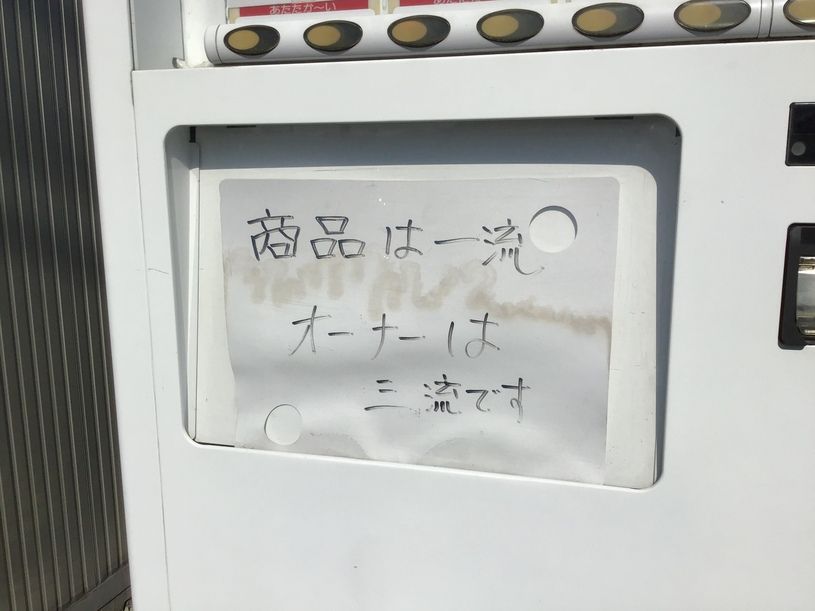 あたたか〜い
あたた
商品は一流
オーナーは
三流です